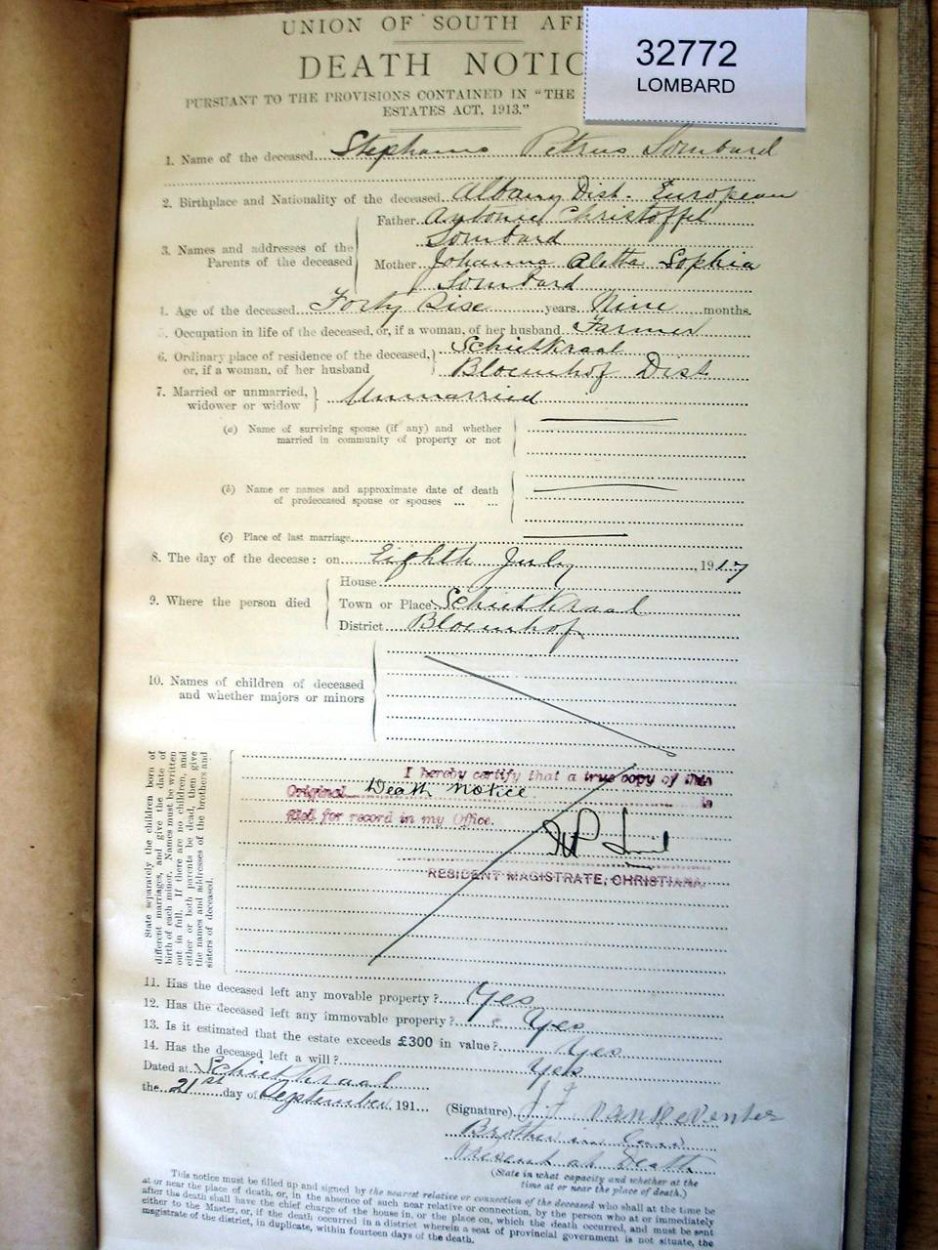 32772
LOMBARD
UNION OF SOUTH AF
DEATH NOTIC
PURSUANT TO THE PROVISIONS CONTAINED IN "THE
ESTATES ACT, 1913."
1. Name of the deceased Stephanus Petrus Lombard
2. Birthplace and Nationality of the deceased Albany Dist. European
3. Names and addresses of the Parents of the deceased
Father Antonie Christoffel
Lombard
Mother Johanna Aletta Sophia
Lombard
4. Age of the deceased Forty Sise years Nine months.
5. Occupation in life of the deceased, or, if a woman, of her husband Farmer
6. Ordinary place of residence of the deceased, Schietkraal
or, if a woman, of her husband Bloemhof Dist
7. Married or unmarried, widower or widow Unmarried
(a) Name of surviving spouse (if any) and whether
married in community of property or not
(b) Name or names and approximate date of death
of predeceased spouse or spouses ... ...
(c) Place of last marriage
8. The day of the decease: on Eighth July 1917
House
9. Where the person died Town or Place Schietkraal
District Bloemhof
10. Names of children of deceased
and whether majors or minors
State separately the children born of
different marriages, and give the date of
birth of each minor. Names must be written
out in full. If there are no children, and
either or both parents be dead, then give
the names and addresses of the brothers and
sisters of deceased.
I hereby certify that a true copy of this
Original Death Notice is
filed for record in my Office.
RESIDENT MAGISTRATE, CHRISTIANA.
11. Has the deceased left any movable property? Yes
12. Has the deceased left any immovable property? Yes
13. Is it estimated that the estate exceeds £300 in value? Yes
14. Has the deceased left a will? Yes
Dated at Schietkraal
the 21st day of September 191
(Signature) J F vanDeventer
Brother in Law
Present at Death
(State in what capacity and whether at the
time at or near the place of death.)
This notice must be filled up and signed by the nearest relative or connection of the deceased who shall at the time be
at or near the place of death, or, in the absence of such near relative or connection, by the person who at or immediately
after the death shall have the chief charge of the house in, or the place on, which the death occurred, and must be sent
either to the Master, or, if the death occurred in a district wherein a seat of provincial government is not situate, the
magistrate of the district, in duplicate, within fourteen days of the death.